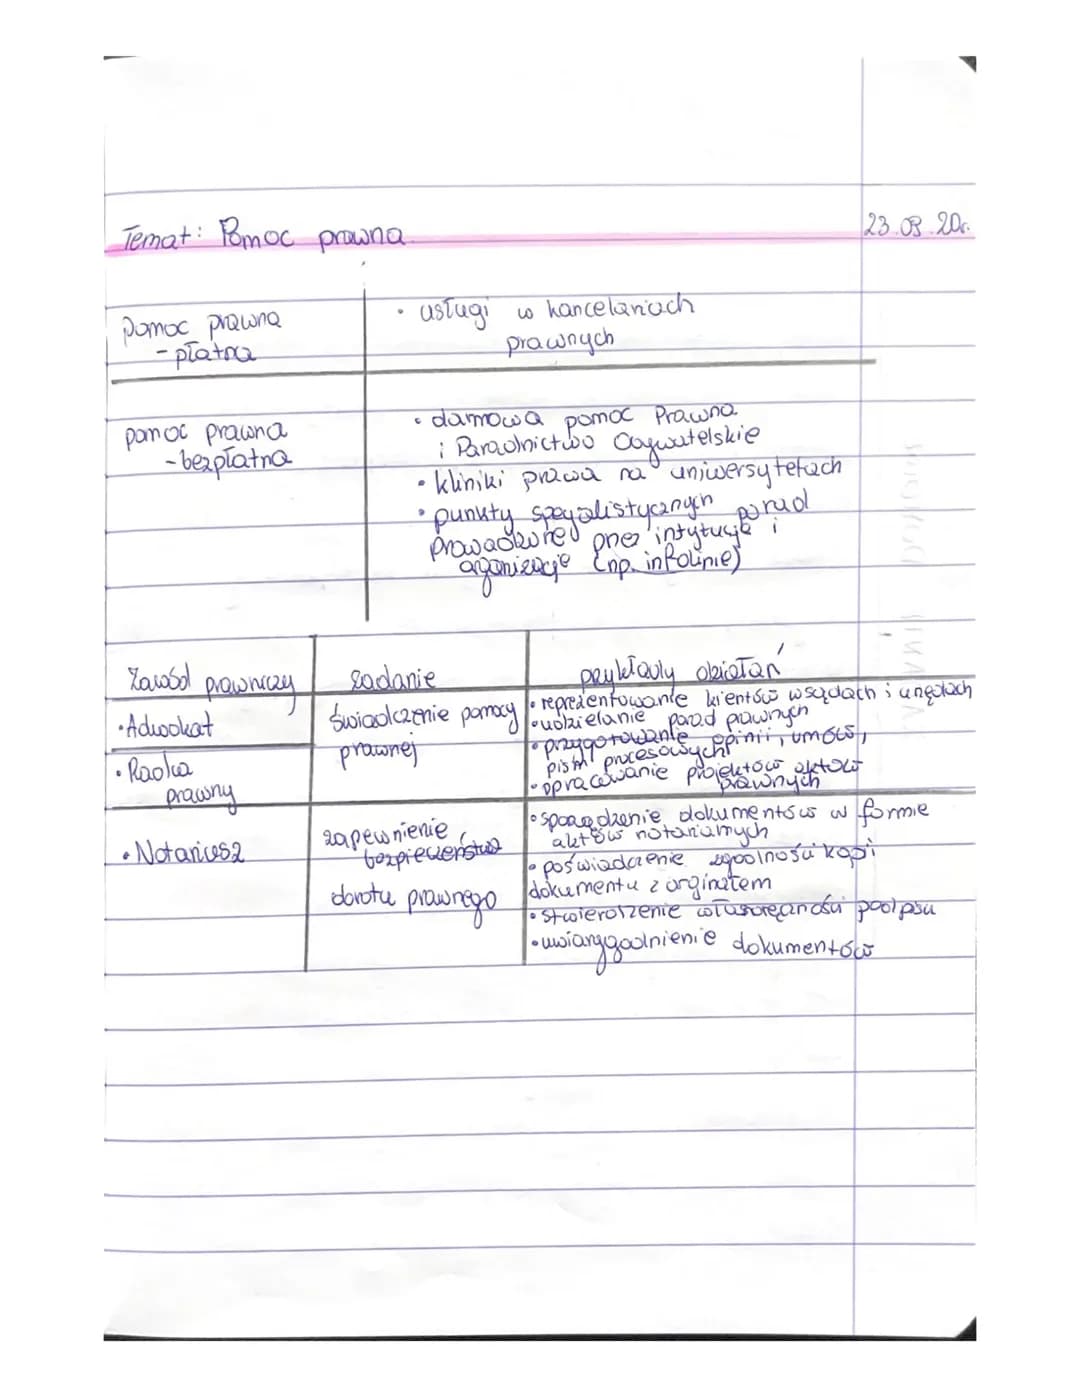 Temat: Pomoc prawna 23.03.20r.
Pomoc prawna
- płatna
• usługi w kancelariach
prawnych
pomoc prawna
- bezpłatna
• darmowa pomoc Prawna
i Poradnictwo Obywatelskie
• kliniki prawa na uniwersytetach
• punkty specjalistycznych porad
prowadzone przez intytucje i
organizacje (np. infolinie)
Zawód prawniczy zadanie przykłady działań
• Adwokat
• Radca
prawny
świadczenie pomocy
prawnej
• reprezentowanie klientów w sądach i urzędach
• udzielanie porad prawnych
• przygotowanie opinii, umów,
pism procesowych
• opracowanie projektów aktów
prawnych
• Notariusz
zapewnienie
bezpieczeństwa
obrotu prawnego
• sporządzenie dokumentów w formie
aktów notarialnych
• poświadczenie zgodności kopi
dokumentu z orginałem
• stwierdzenie własnoręczności podpisu
• uwiarygodnienie dokumentów